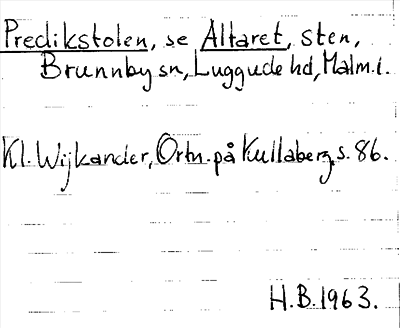 Predikstolen, se Altaret, sten,
Brunnby sn, Luggude hd, Malm.l.
Kl. Wijkander, Ortn. på Kullaberg, s. 86.
H.B. 1963.